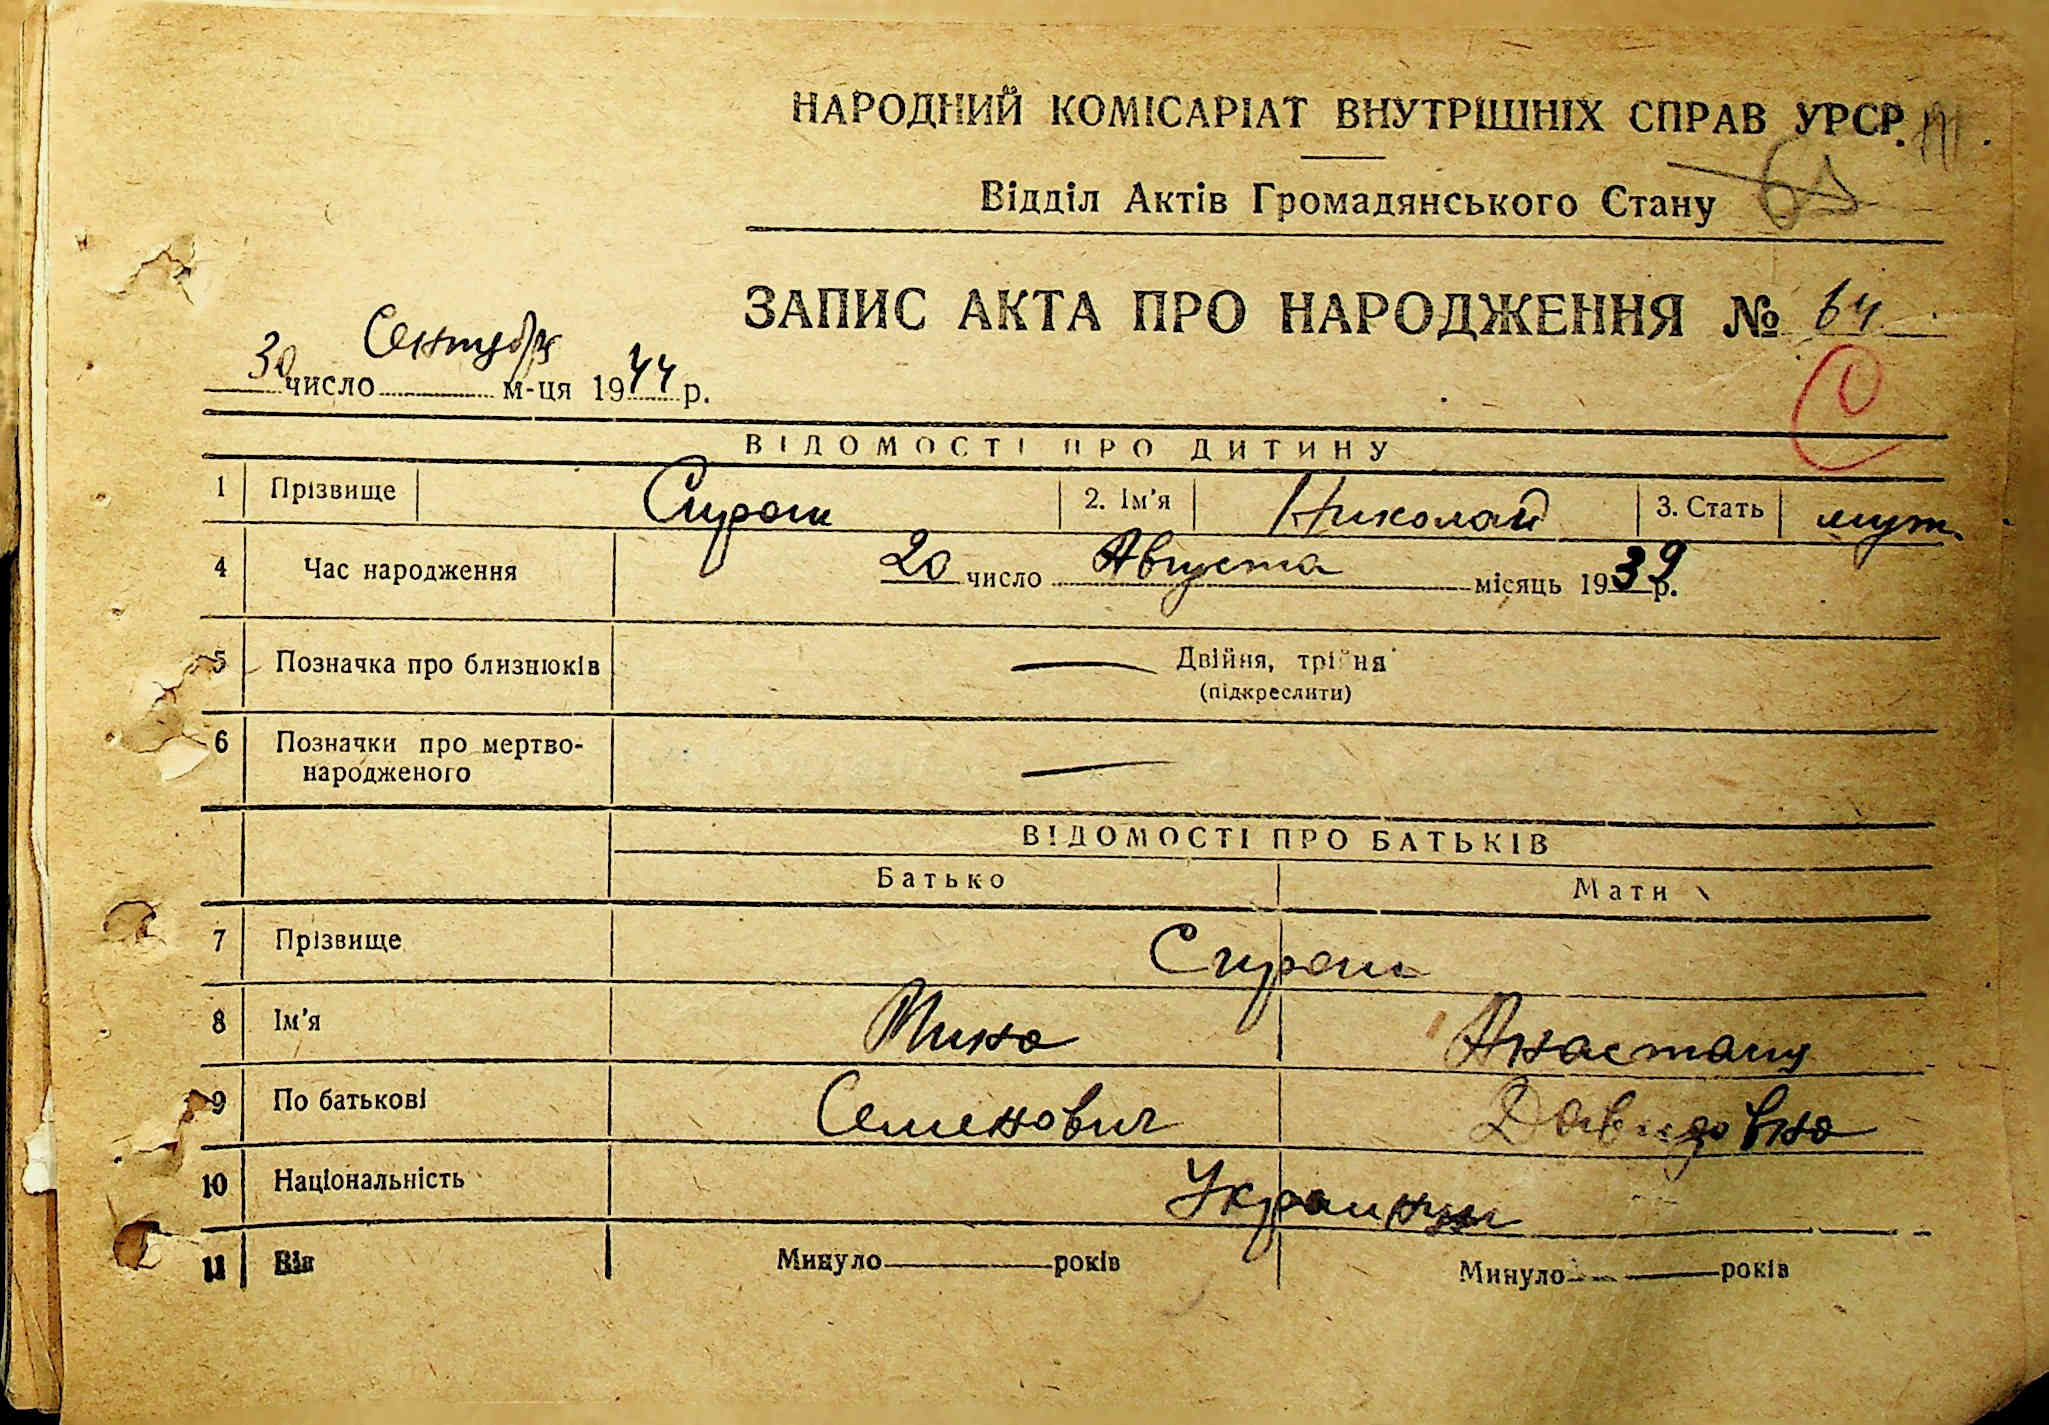 НАРОДНИЙ КОМІСАРІАТ ВНУТРІШНІХ СПРАВ УРСР.
Відділ Актів Громадянського Стану
ЗАПИС АКТА ПРО НАРОДЖЕННЯ № 64
30 число Сентября м-ця 1944 р.
ВІДОМОСТІ ПРО ДИТИНУ
1 Прізвище Сираш 2. Ім'я Николай 3. Стать муж.
4 Час народження 20 число Августа місяць 1939 р.
5 Позначка про близнюків — Двійня, трійня
(підкреслити)
6 Позначки про мертво-
народженого —
ВІДОМОСТІ ПРО БАТЬКІВ
Батько Мати
7 Прізвище Сираш
8 Ім'я Мина Анастасия
9 По батькові Семенович Давидовна
10 Національність Украинцы
11 Вік Минуло — років Минуло — років